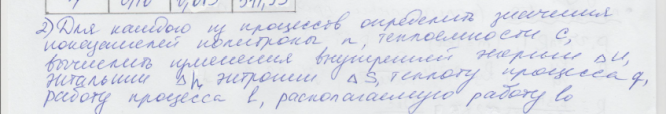 0,10 0,015 591,55
2) Для каждого из процессов определить значения
показателей политропы n, теплоемкости c,
вычислить изменения внутренней энергии ΔU,
энтальпии Δh, энтропии ΔS, теплоту процесса q,
работу процесса l, располагаемую работу l₀